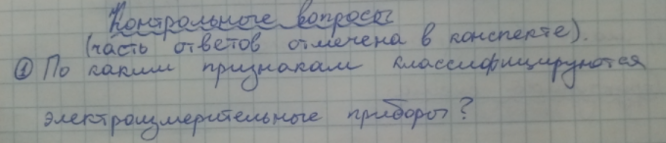 Контрольные вопросы
(часть ответов отмечена в конспекте).
① По каким признакам классифицируются
электроизмерительные приборы?